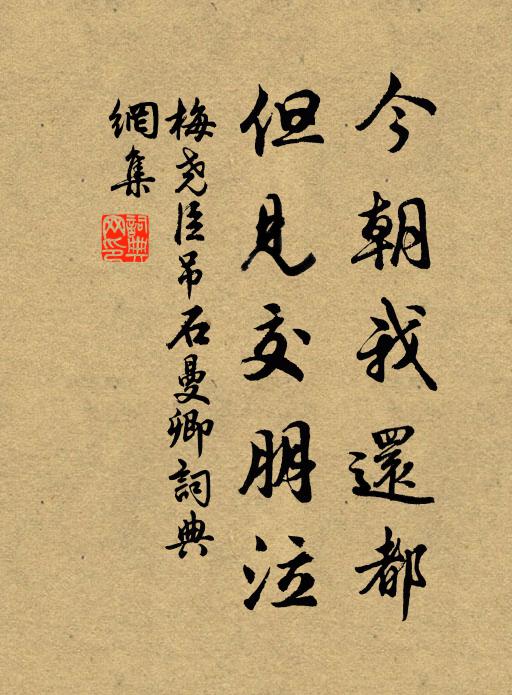 今朝我還都
但見交朋泣
梅尧臣吊石曼卿詞典
網集
詞典
网印